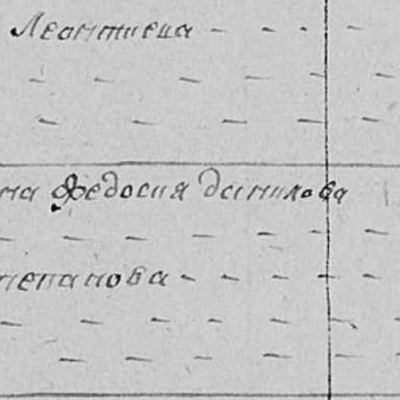 Леонтиева
на Федосия данилова
тепанова